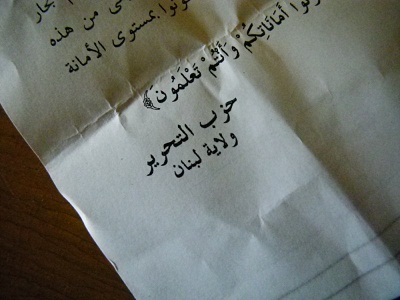 من هذه
بمستوى الأمانة
أَمَانَاتِكُمْ وَأَنْتُمْ تَعْلَمُونَ﴾
حزب التحرير
ولاية لبنان